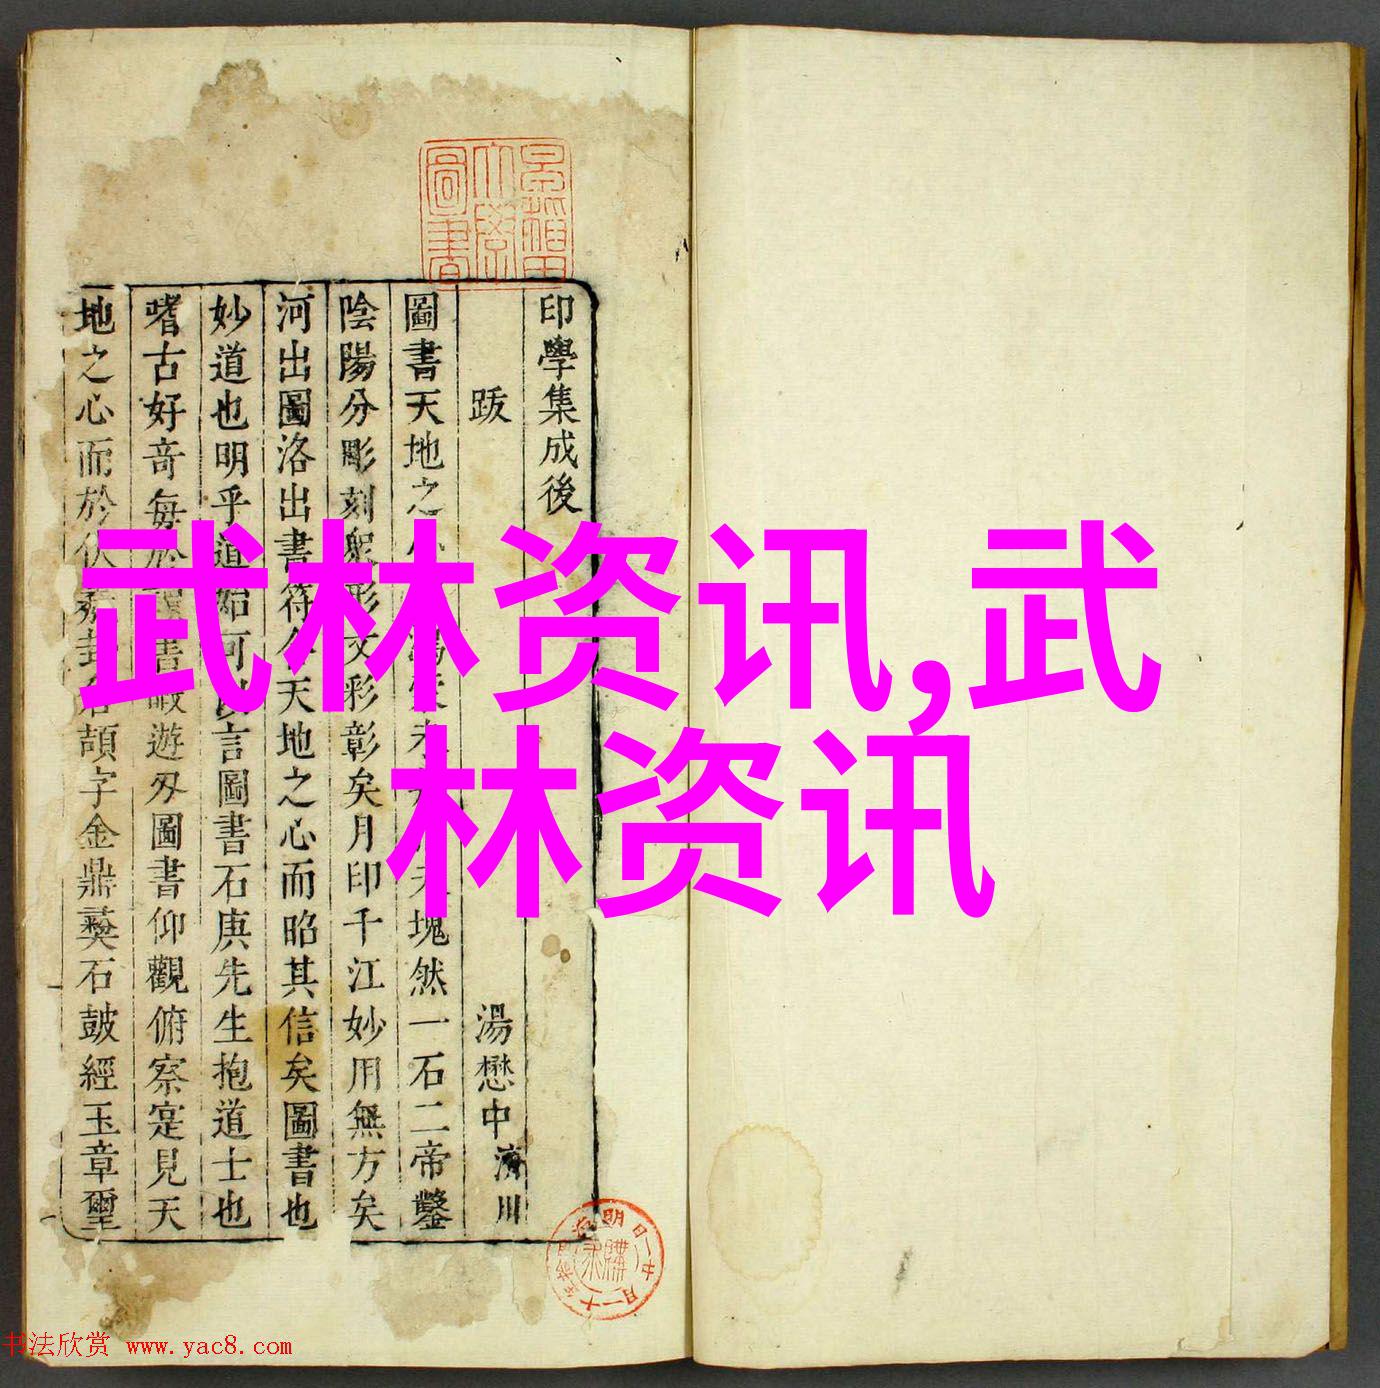 印學集成後
跋
湯懋中濟川
圖書天地之 塊然一石二帝鑿
陰陽分彫刻 形文彩彰矣月印千江妙用無方矣
河出圖洛出書符 天地之心而昭其信矣圖書也
妙道也明乎道始可 言圖書石庚先生抱道士也
嗜古好奇每於 書 遊刃圖書仰觀俯察寔見天
地之心而於伏 頡字金鼎彝石皷經玉章璽
武林资讯,武
林资讯
书法欣赏 www.yac8.com